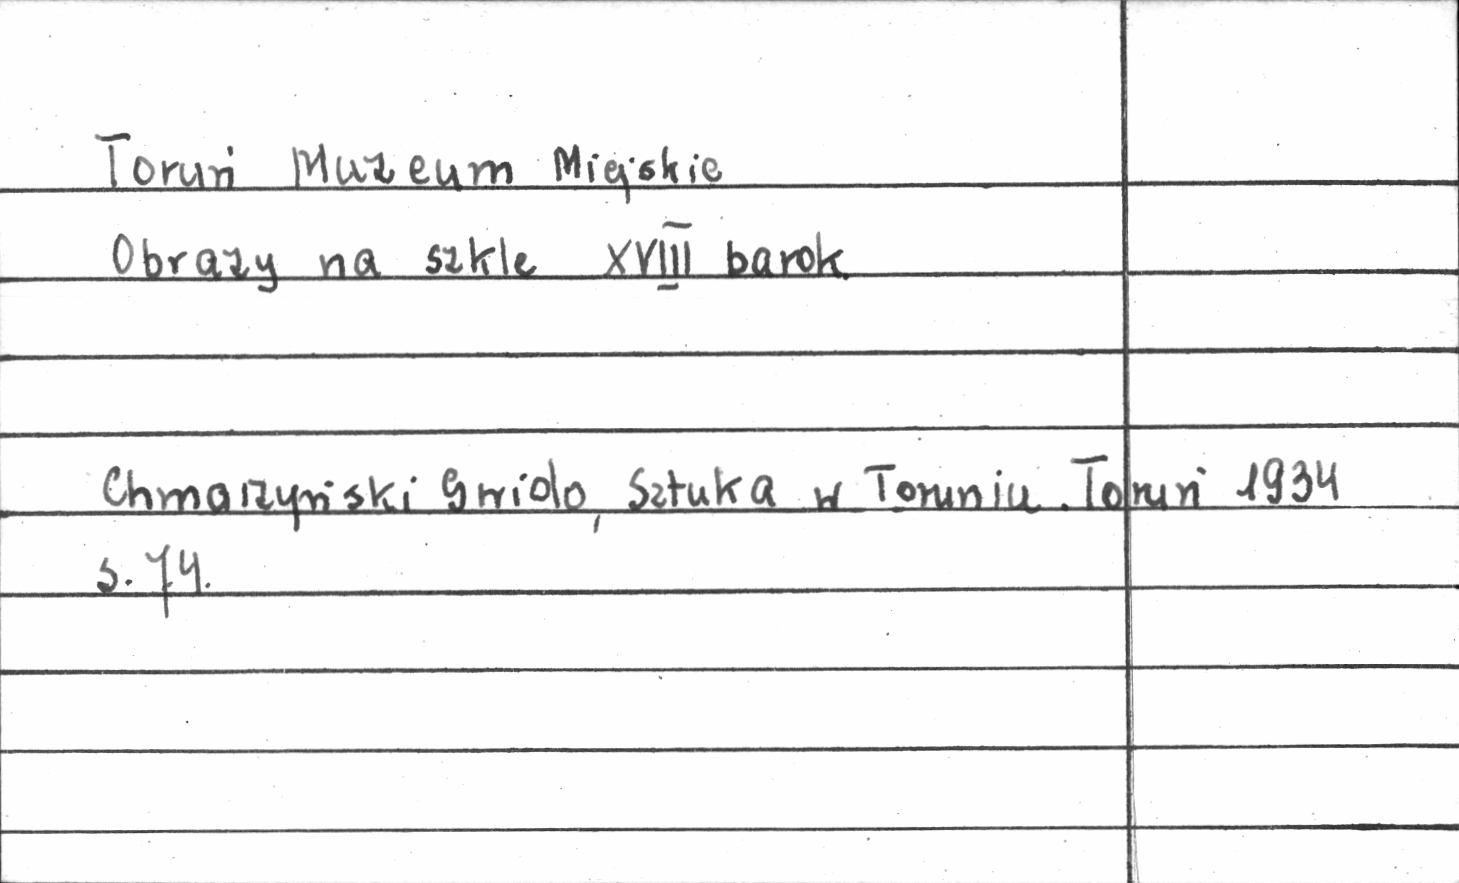 Toruń Muzeum Miejskie
Obrazy na szkle XVIII barok.
Chmarzyński Gwido, Sztuka w Toruniu. Toruń 1934
s. 74.